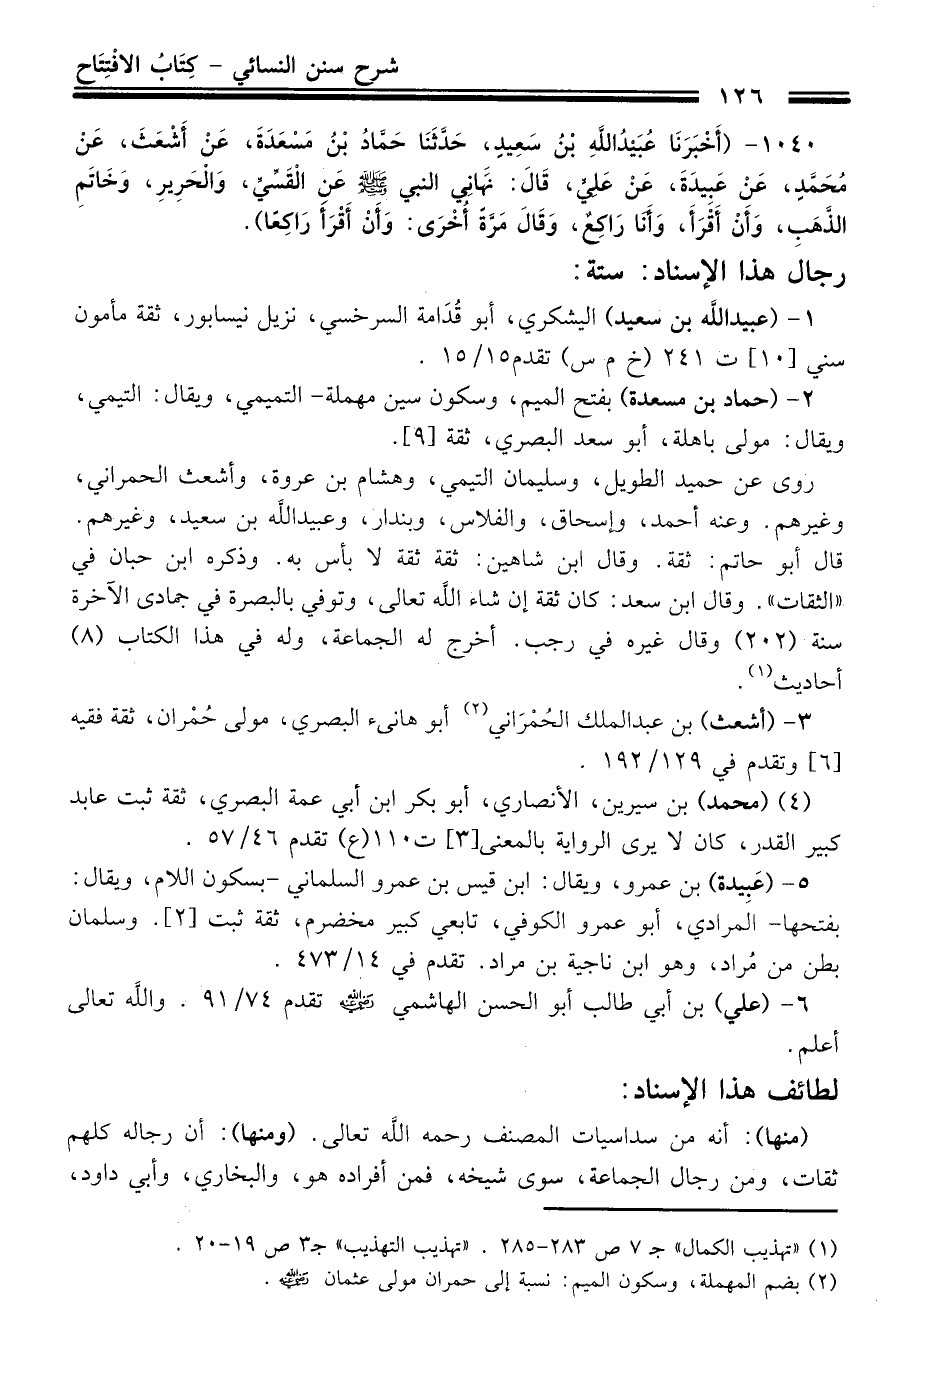 شرح سنن النسائي - كِتَابُ الافْتِتَاح
١٢٦
١٠٤٠- (أَخْبَرَنَا عُبَيْدُاللَّهِ بْنُ سَعِيدٍ، حَدَّثَنَا حَمَّادُ بْنُ مَسْعَدَةَ، عَنْ أَشْعَثَ، عَنْ
مُحَمَّدٍ، عَنْ عَبِيدَةَ، عَنْ عَلِيٍّ، قَالَ: نَهَانِي النبي ﷺ عَنِ الْقَسِّيِّ، وَالْحَرِيرِ، وَخَاتَمِ
الذَّهَبِ، وَأَنْ أَقْرَأَ، وَأَنَا رَاكِعٌ، وَقَالَ مَرَّةً أُخْرَى: وَأَنْ أَقْرَأَ رَاكِعًا).
رجال هذا الإسناد: ستة:
١- (عبيدالله بن سعيد) اليشكري، أبو قُدَامة السرخسي، نزيل نيسابور، ثقة مأمون
سني [١٠] ت ٢٤١ (خ م س) تقدم١٥/١٥ .
٢- (حماد بن مسعدة) بفتح الميم، وسكون سين مهملة- التميمي، ويقال: التيمي،
ويقال: مولى باهلة، أبو سعد البصري، ثقة [٩].
روى عن حميد الطويل، وسليمان التيمي، وهشام بن عروة، وأشعث الحمراني،
وغيرهم. وعنه أحمد، وإسحاق، والفلاس، وبندار، وعبيداللَّه بن سعيد، وغيرهم.
قال أبو حاتم: ثقة. وقال ابن شاهين: ثقة ثقة لا بأس به. وذكره ابن حبان في
«الثقات». وقال ابن سعد: كان ثقة إن شاء اللَّه تعالى، وتوفي بالبصرة في جمادى الآخرة
سنة (٢٠٢) وقال غيره في رجب. أخرج له الجماعة، وله في هذا الكتاب (٨)
أحاديث(١).
٣- (أشعث) بن عبدالملك الحُمْرَاني(٢) أبو هانىء البصري، مولى حُمْران، ثقة فقيه
[٦] وتقدم في ١٩٢/١٢٩ .
(٤) (محمد) بن سيرين، الأنصاري، أبو بكر ابن أبي عمة البصري، ثقة ثبت عابد
كبير القدر، كان لا يرى الرواية بالمعنى[٣] ت١١٠(ع) تقدم ٥٧/٤٦ .
٥- (عَبِيدة) بن عمرو، ويقال: ابن قيس بن عمرو السلماني -بسكون اللام، ويقال:
بفتحها- المرادي، أبو عمرو الكوفي، تابعي كبير مخضرم، ثقة ثبت [٢]. وسلمان
بطن من مُراد، وهو ابن ناجية بن مراد. تقدم في ٤٧٣/١٤ .
٦- (علي) بن أبي طالب أبو الحسن الهاشمي رضي الله عنه تقدم ٩١/٧٤ . واللَّه تعالى
أعلم.
لطائف هذا الإسناد:
(منها): أنه من سداسيات المصنف رحمه اللَّه تعالى. (ومنها): أن رجاله كلهم
ثقات، ومن رجال الجماعة، سوى شيخه، فمن أفراده هو، والبخاري، وأبي داود،
(١) «تهذيب الكمال» جـ ٧ ص ٢٨٣-٢٨٥ . «تهذيب التهذيب» جـ٣ ص ١٩-٢٠ .
(٢) بضم المهملة، وسكون الميم: نسبة إلى حمران مولى عثمان رضي الله عنه .